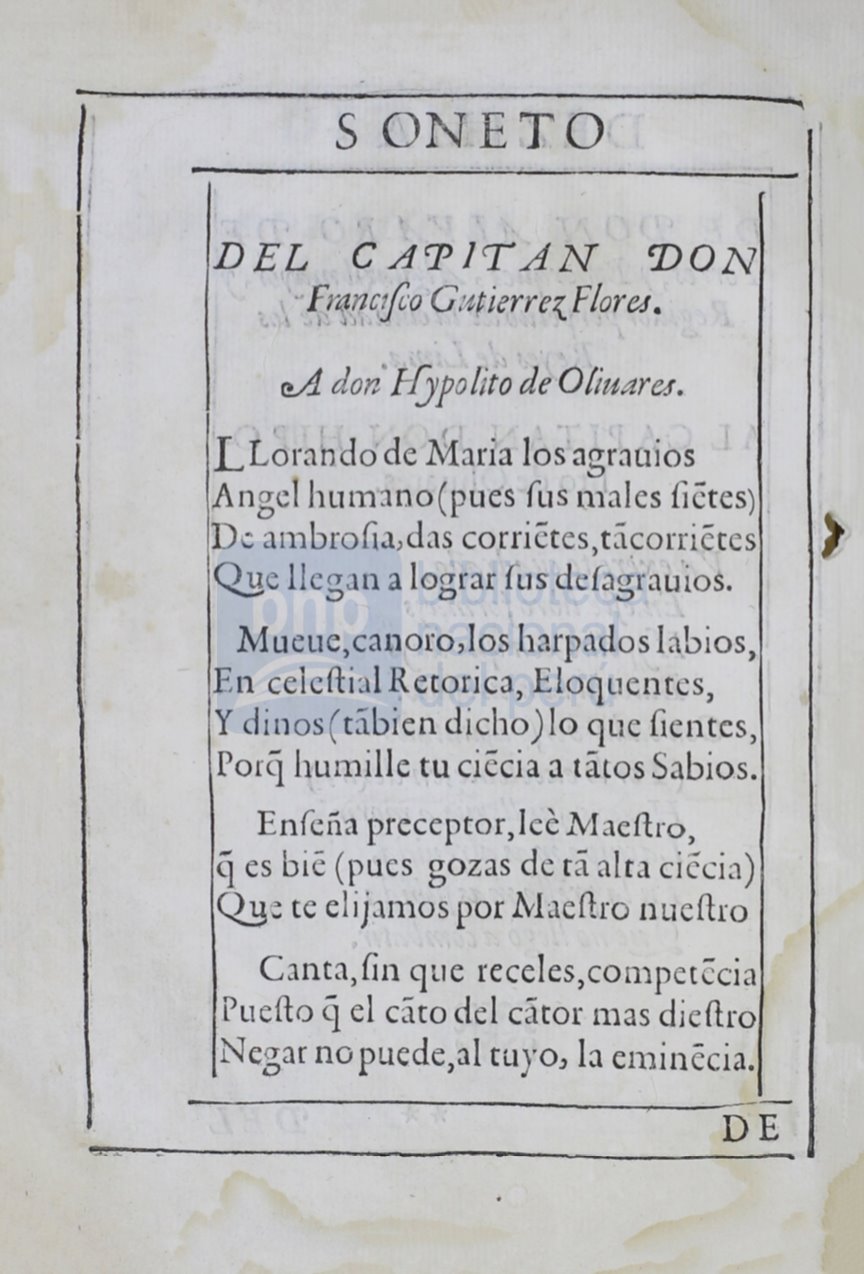 SONETO
DEL CAPITAN DON
Franciſco Gutierrez Flores.
A don Hypolito de Oliuares.
LLorando de Maria los agrauios
Angel humano (pues ſus males ſiẽtes)
De ambroſia, das corriẽtes, tãcorriẽtes
Que llegan a lograr ſus deſagrauios.
Mueue, canoro, los harpados labios,
En celeſtial Retorica, Eloquentes,
Y dinos (tãbien dicho) lo que ſientes,
Porq̃ humille tu ciẽcia a tãtos Sabios.
Enſeña preceptor, leè Maeſtro,
q̃ es biẽ (pues gozas de tã alta ciẽcia)
Que te elijamos por Maeſtro nueſtro
Canta, ſin que receles, competẽcia
Pueſto q̃ el cãto del cãtor mas dieſtro
Negar no puede, al tuyo, la eminẽcia.
DE
bnp biblioteca
nacional
del perú